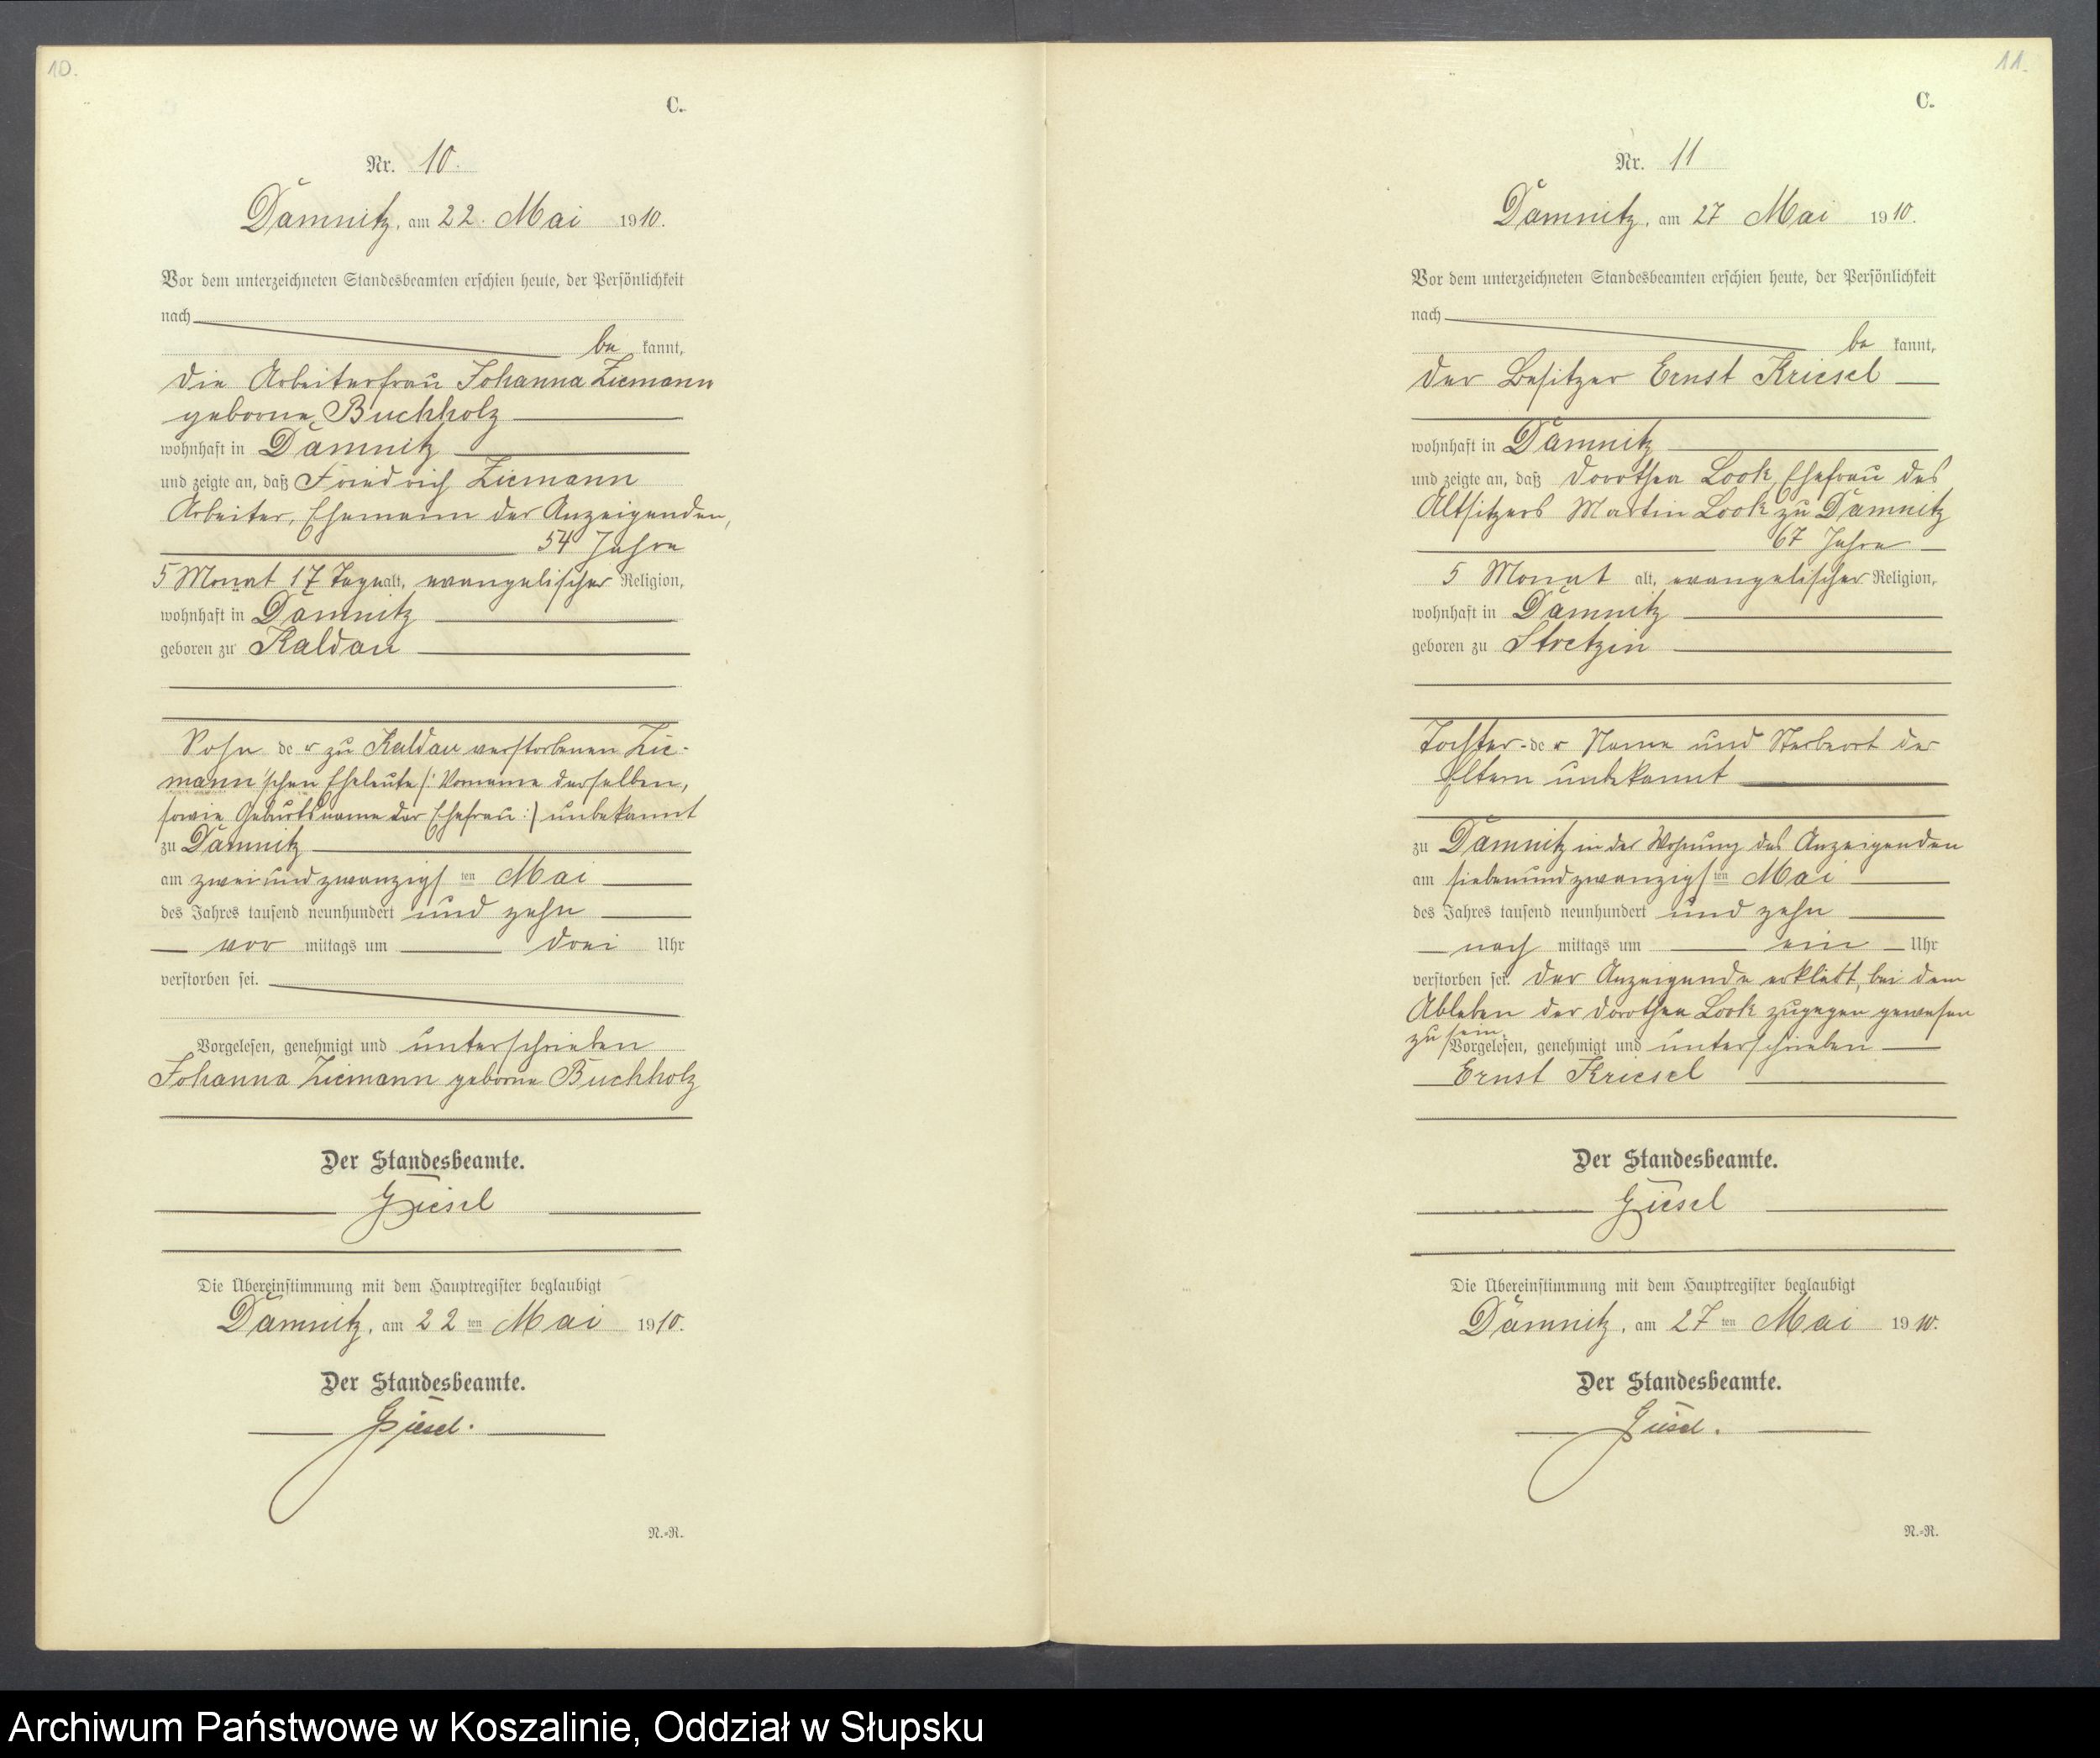 10.
C.
Nr. 10.
Damnitz, am 22. Mai 1910.
Vor dem unterzeichneten Standesbeamten erschien heute, der Persönlichkeit
nach
be kannt,
die Arbeiterfrau Johanna Ziemann
geborne Buchholz
wohnhaft in Damnitz
und zeigte an, daß Friedrich Ziemann
Arbeiter, Ehemann der Anzeigenden,
54 Jahre
5 Monat 17 Tage alt, evangelischer Religion,
wohnhaft in Damnitz
geboren zu Kaldau
Sohn der zu Kaldau verstorbenen Zie-
mann'schen Eheleute /: Vorname derselben,
sowie Geburtsname der Ehefrau :/ unbekannt
zu Damnitz
am zweiundzwanzigsten Mai
des Jahres tausend neunhundert und zehn
vor mittags um drei Uhr
verstorben sei.
Vorgelesen, genehmigt und unterschrieben
Johanna Ziemann geborne Buchholz
Der Standesbeamte.
Giesel
Die Übereinstimmung mit dem Hauptregister beglaubigt
Damnitz, am 22ten Mai 1910.
Der Standesbeamte.
Giesel.
N.-R.
11.
C.
Nr. 11
Damnitz, am 27 Mai 1910.
Vor dem unterzeichneten Standesbeamten erschien heute, der Persönlichkeit
nach
be kannt,
der Besitzer Ernst Kriesel
wohnhaft in Damnitz
und zeigte an, daß Dorothea Look, Ehefrau des
Altsitzers Martin Look zu Damnitz
67 Jahre
5 Monat alt, evangelischer Religion,
wohnhaft in Damnitz
geboren zu Stretzin
Tochter der Name und Sterbeort der
Eltern unbekannt
zu Damnitz in der Wohnung des Anzeigenden
am siebenundzwanzigsten Mai
des Jahres tausend neunhundert und zehn
nach mittags um ein Uhr
verstorben sei. Der Anzeigende erklärt, bei dem
Ableben der Dorothea Look zugegen gewesen
zu sein.
Vorgelesen, genehmigt und unterschrieben
Ernst Kriesel
Der Standesbeamte.
Giesel
Die Übereinstimmung mit dem Hauptregister beglaubigt
Damnitz, am 27ten Mai 1910.
Der Standesbeamte.
Giesel.
N.-R.
Archiwum Państwowe w Koszalinie, Oddział w Słupsku